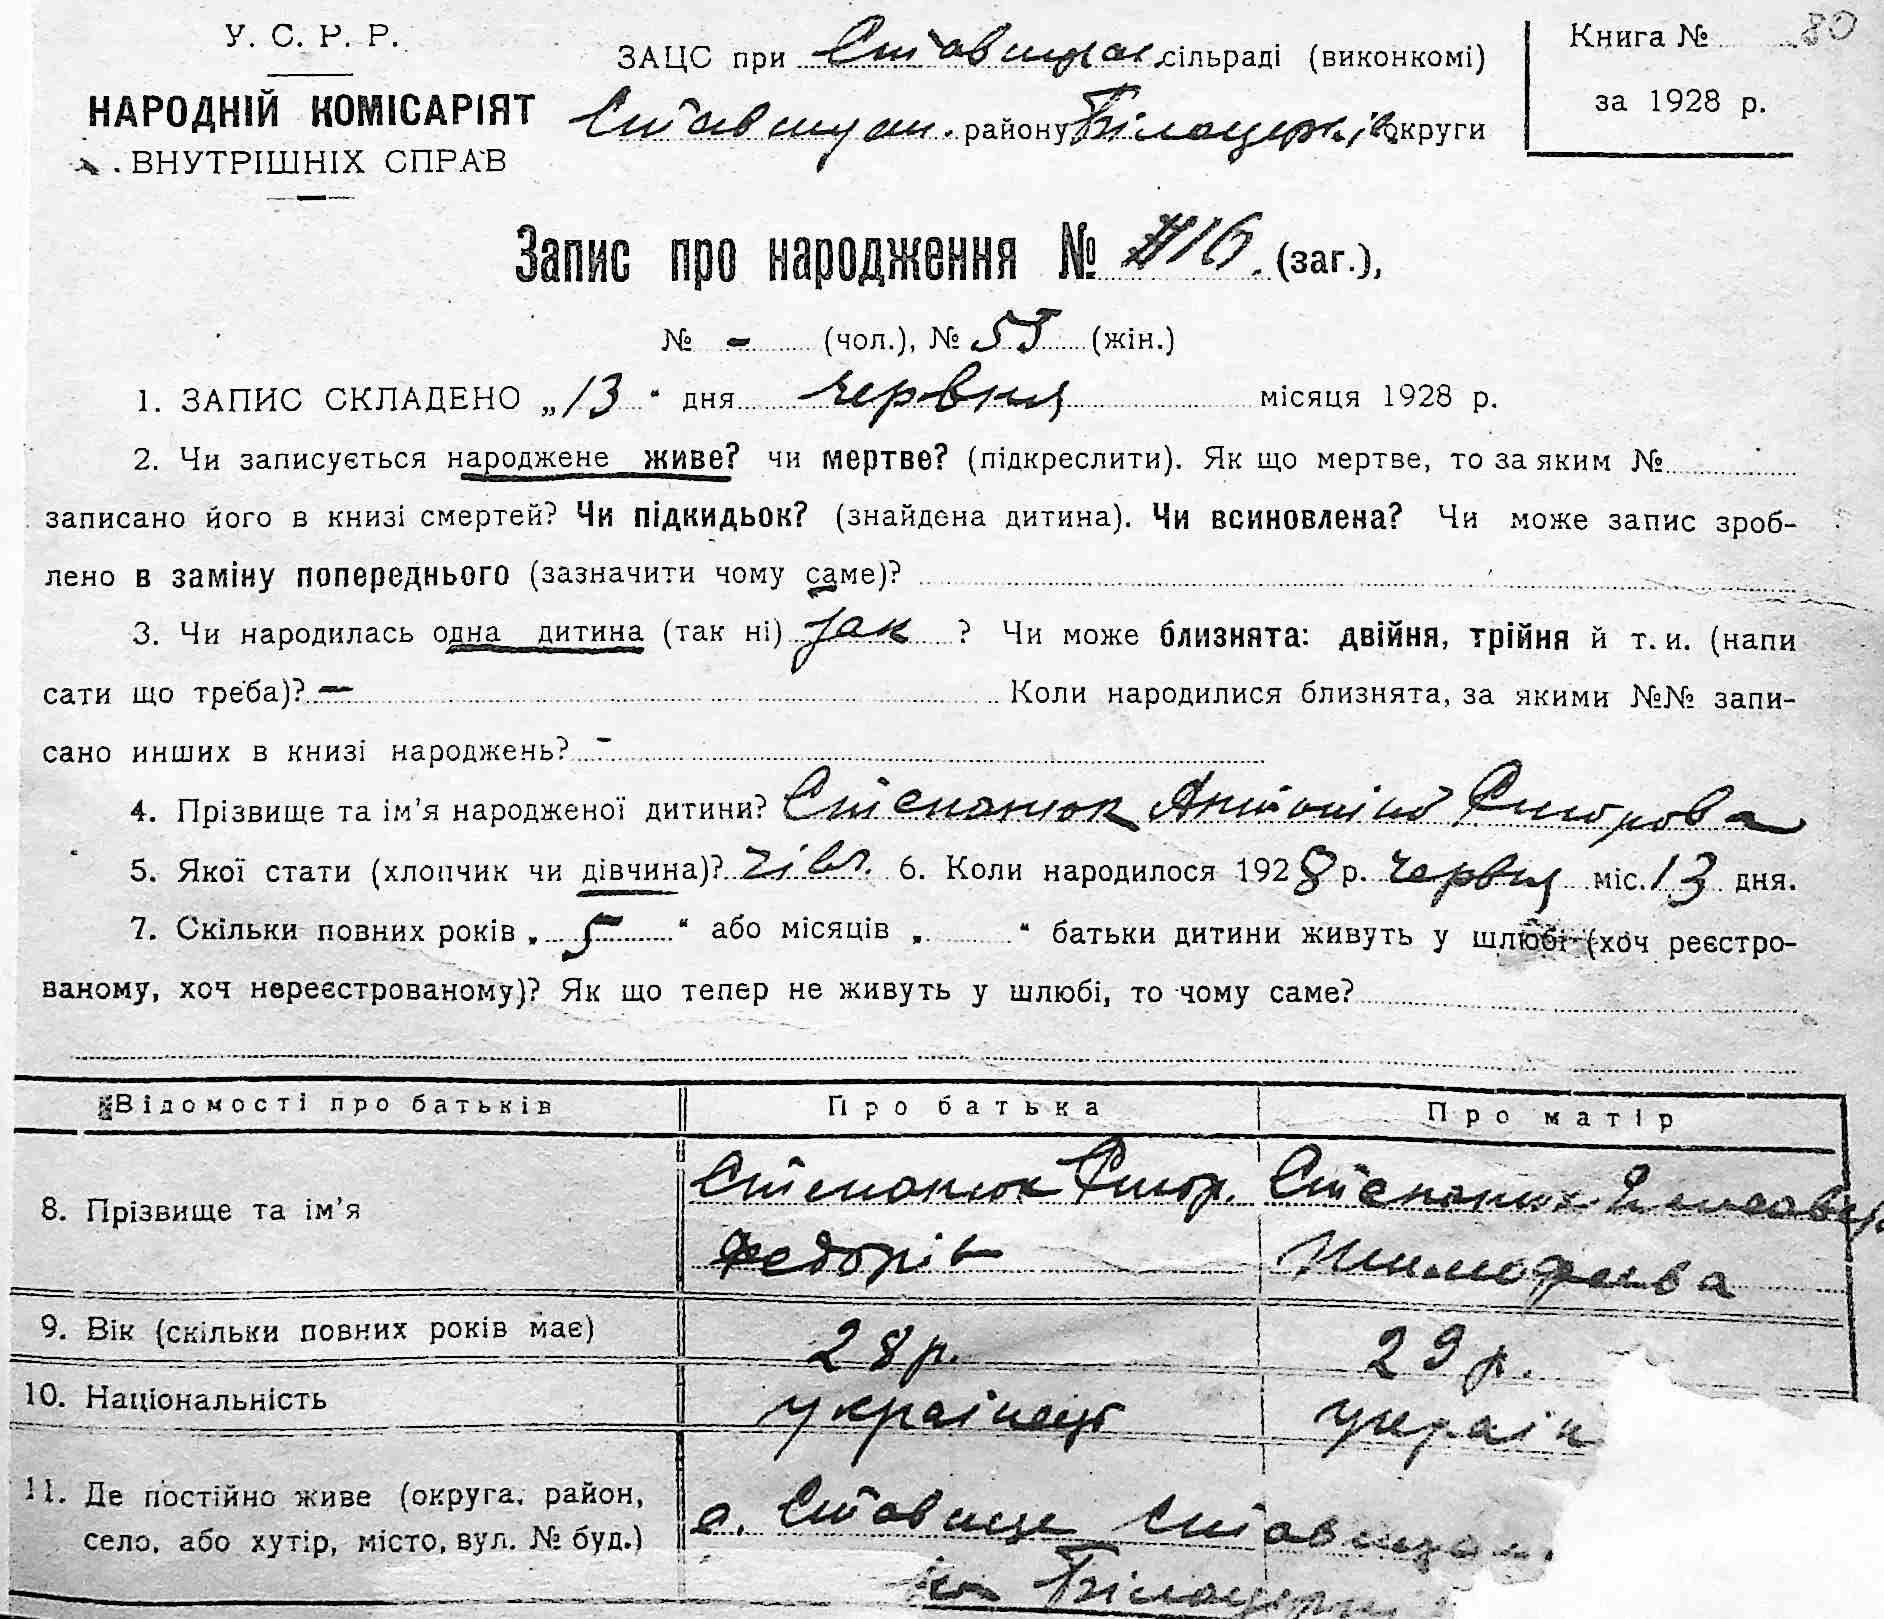 У. С. Р. Р.
НАРОДНІЙ КОМІСАРІЯТ
ВНУТРІШНІХ СПРАВ
ЗАЦС при Ставищан. сільраді (виконкомі)
Ставищан. району Білоцерків. округи
Книга № 80
за 1928 р.
Запис про народження № 116. (заг.),
№ - (чол.), № 55 (жін.)
1. ЗАПИС СКЛАДЕНО „13" дня червня місяця 1928 р.
2. Чи записується народжене живе? чи мертве? (підкреслити). Як що мертве, то за яким №
записано його в книзі смертей? Чи підкидьок? (знайдена дитина). Чи всиновлена? Чи може запис зроб-
лено в заміну попереднього (зазначити чому саме)?
3. Чи народилась одна дитина (так ні) так ? Чи може близнята: двійня, трійня й т. и. (напи
сати що треба)? — Коли народилися близнята, за якими №№ запи-
сано инших в книзі народжень? -
4. Прізвище та ім'я народженої дитини? Степанюк Антоніна Григорова
5. Якої стати (хлопчик чи дівчина)? дівч. 6. Коли народилося 1928 р. червня міс. 13 дня.
7. Скільки повних років „ 5 " або місяців „ " батьки дитини живуть у шлюбі (хоч реєстро-
ваному, хоч нереєстрованому)? Як що тепер не живуть у шлюбі, то чому саме?
Відомості про батьків Про батька Про матір
8. Прізвище та ім'я
Степанюк Григор. Федорів
Степанюк Елисавер. Тимофеева
9. Вік (скільки повних років має) 28 р. 29 р.
10. Національність українець україн
11. Де постійно живе (округа, район,
село, або хутір, місто, вул. № буд.)
с. Ставище Ставищан.
Білоцерк